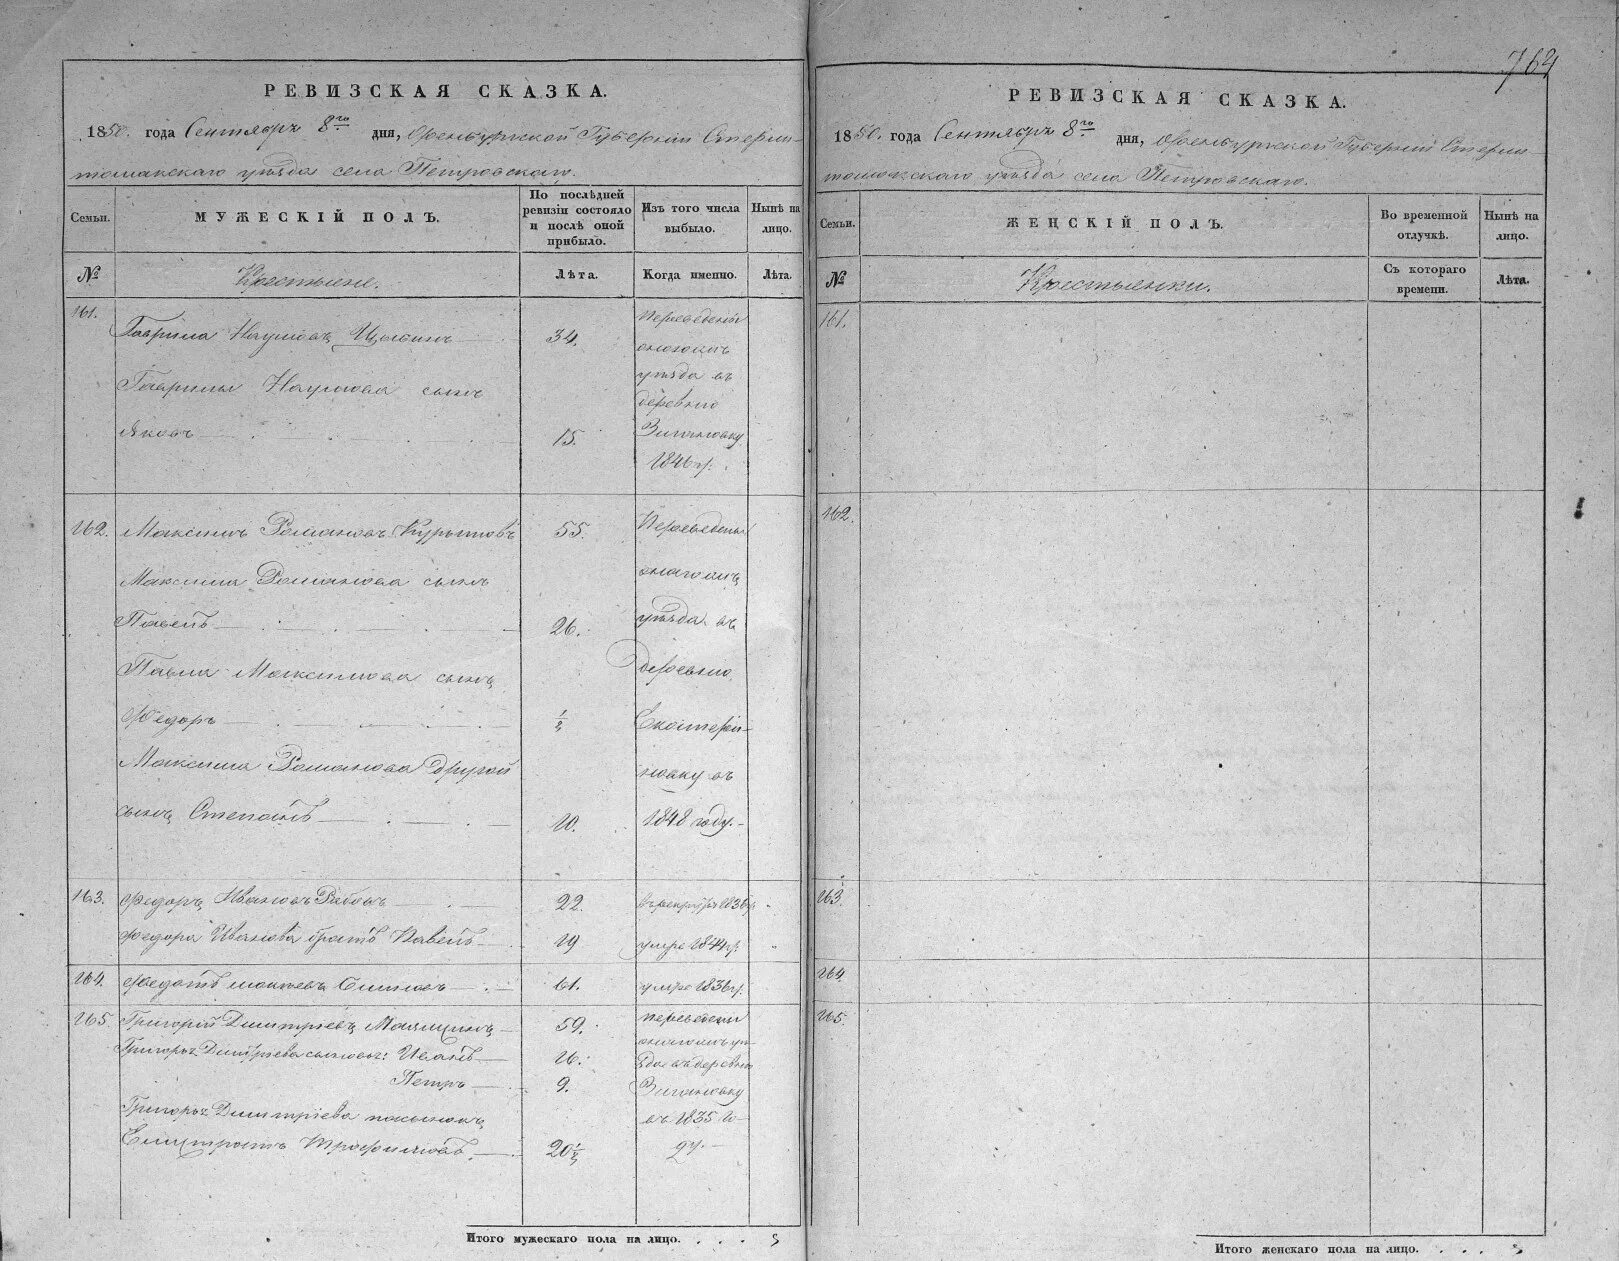 764
РЕВИЗСКАЯ СКАЗКА.
1850. года Сентября 8го дня, Оренбургской Губернии Стерли-
тамакского уѣзда села Петровскаго.
Семьи.
МУЖЕСКІЙ ПОЛЪ.
По послѣдней
ревизіи состояло
и послѣ оной
прибыло.
Изъ того числа
выбыло.
Нынѣ на
лицо.
№
Крестьяне.
Лѣта.
Когда именно.
Лѣта.
161.
Гаврила Наумовъ
34.
Переведены
уѣзда въ
Гаврилы Наумова сынъ
деревню
Яковъ
15.
Зигановку
1846 г.
162.
Максимъ Романовъ
55.
Переведены
Максима Романова сынъ
Павелъ
26.
уѣзда въ
Павла Максимова сынъ
деревню
Федоръ
½
Екатери-
Максима Романова другой
новку въ
сынъ Степанъ
10.
1848 году.
163.
Федоръ Ивановъ Рябовъ
22.
въ рекруты 1836 г.
Федора Иванова братъ Павелъ
19
умре 1844 г.
164.
Федотъ
61.
умре 1836 г.
165.
Григорій Дмитріевъ
59.
переведены
Григорья Дмитріева сыновья: Иванъ
16.
ѣзда въ деревню
Петръ
9.
Зигановку
Григорья Дмитріева пасынокъ
въ 1835 го-
Трофимовъ
20½
ду.
Итого мужескаго пола на лицо. . . . „
РЕВИЗСКАЯ СКАЗКА.
1850. года Сентября 8го дня, Оренбургской Губерніи Стерли-
тамакского уѣзда села Петровскаго.
Семьи.
ЖЕНСКІЙ ПОЛЪ.
Во временной
отлучкѣ.
Нынѣ на
лицо.
№
Крестьянки.
Съ котораго
времени.
Лѣта.
161.
162.
163.
164.
165.
Итого женскаго пола на лицо. . . . „